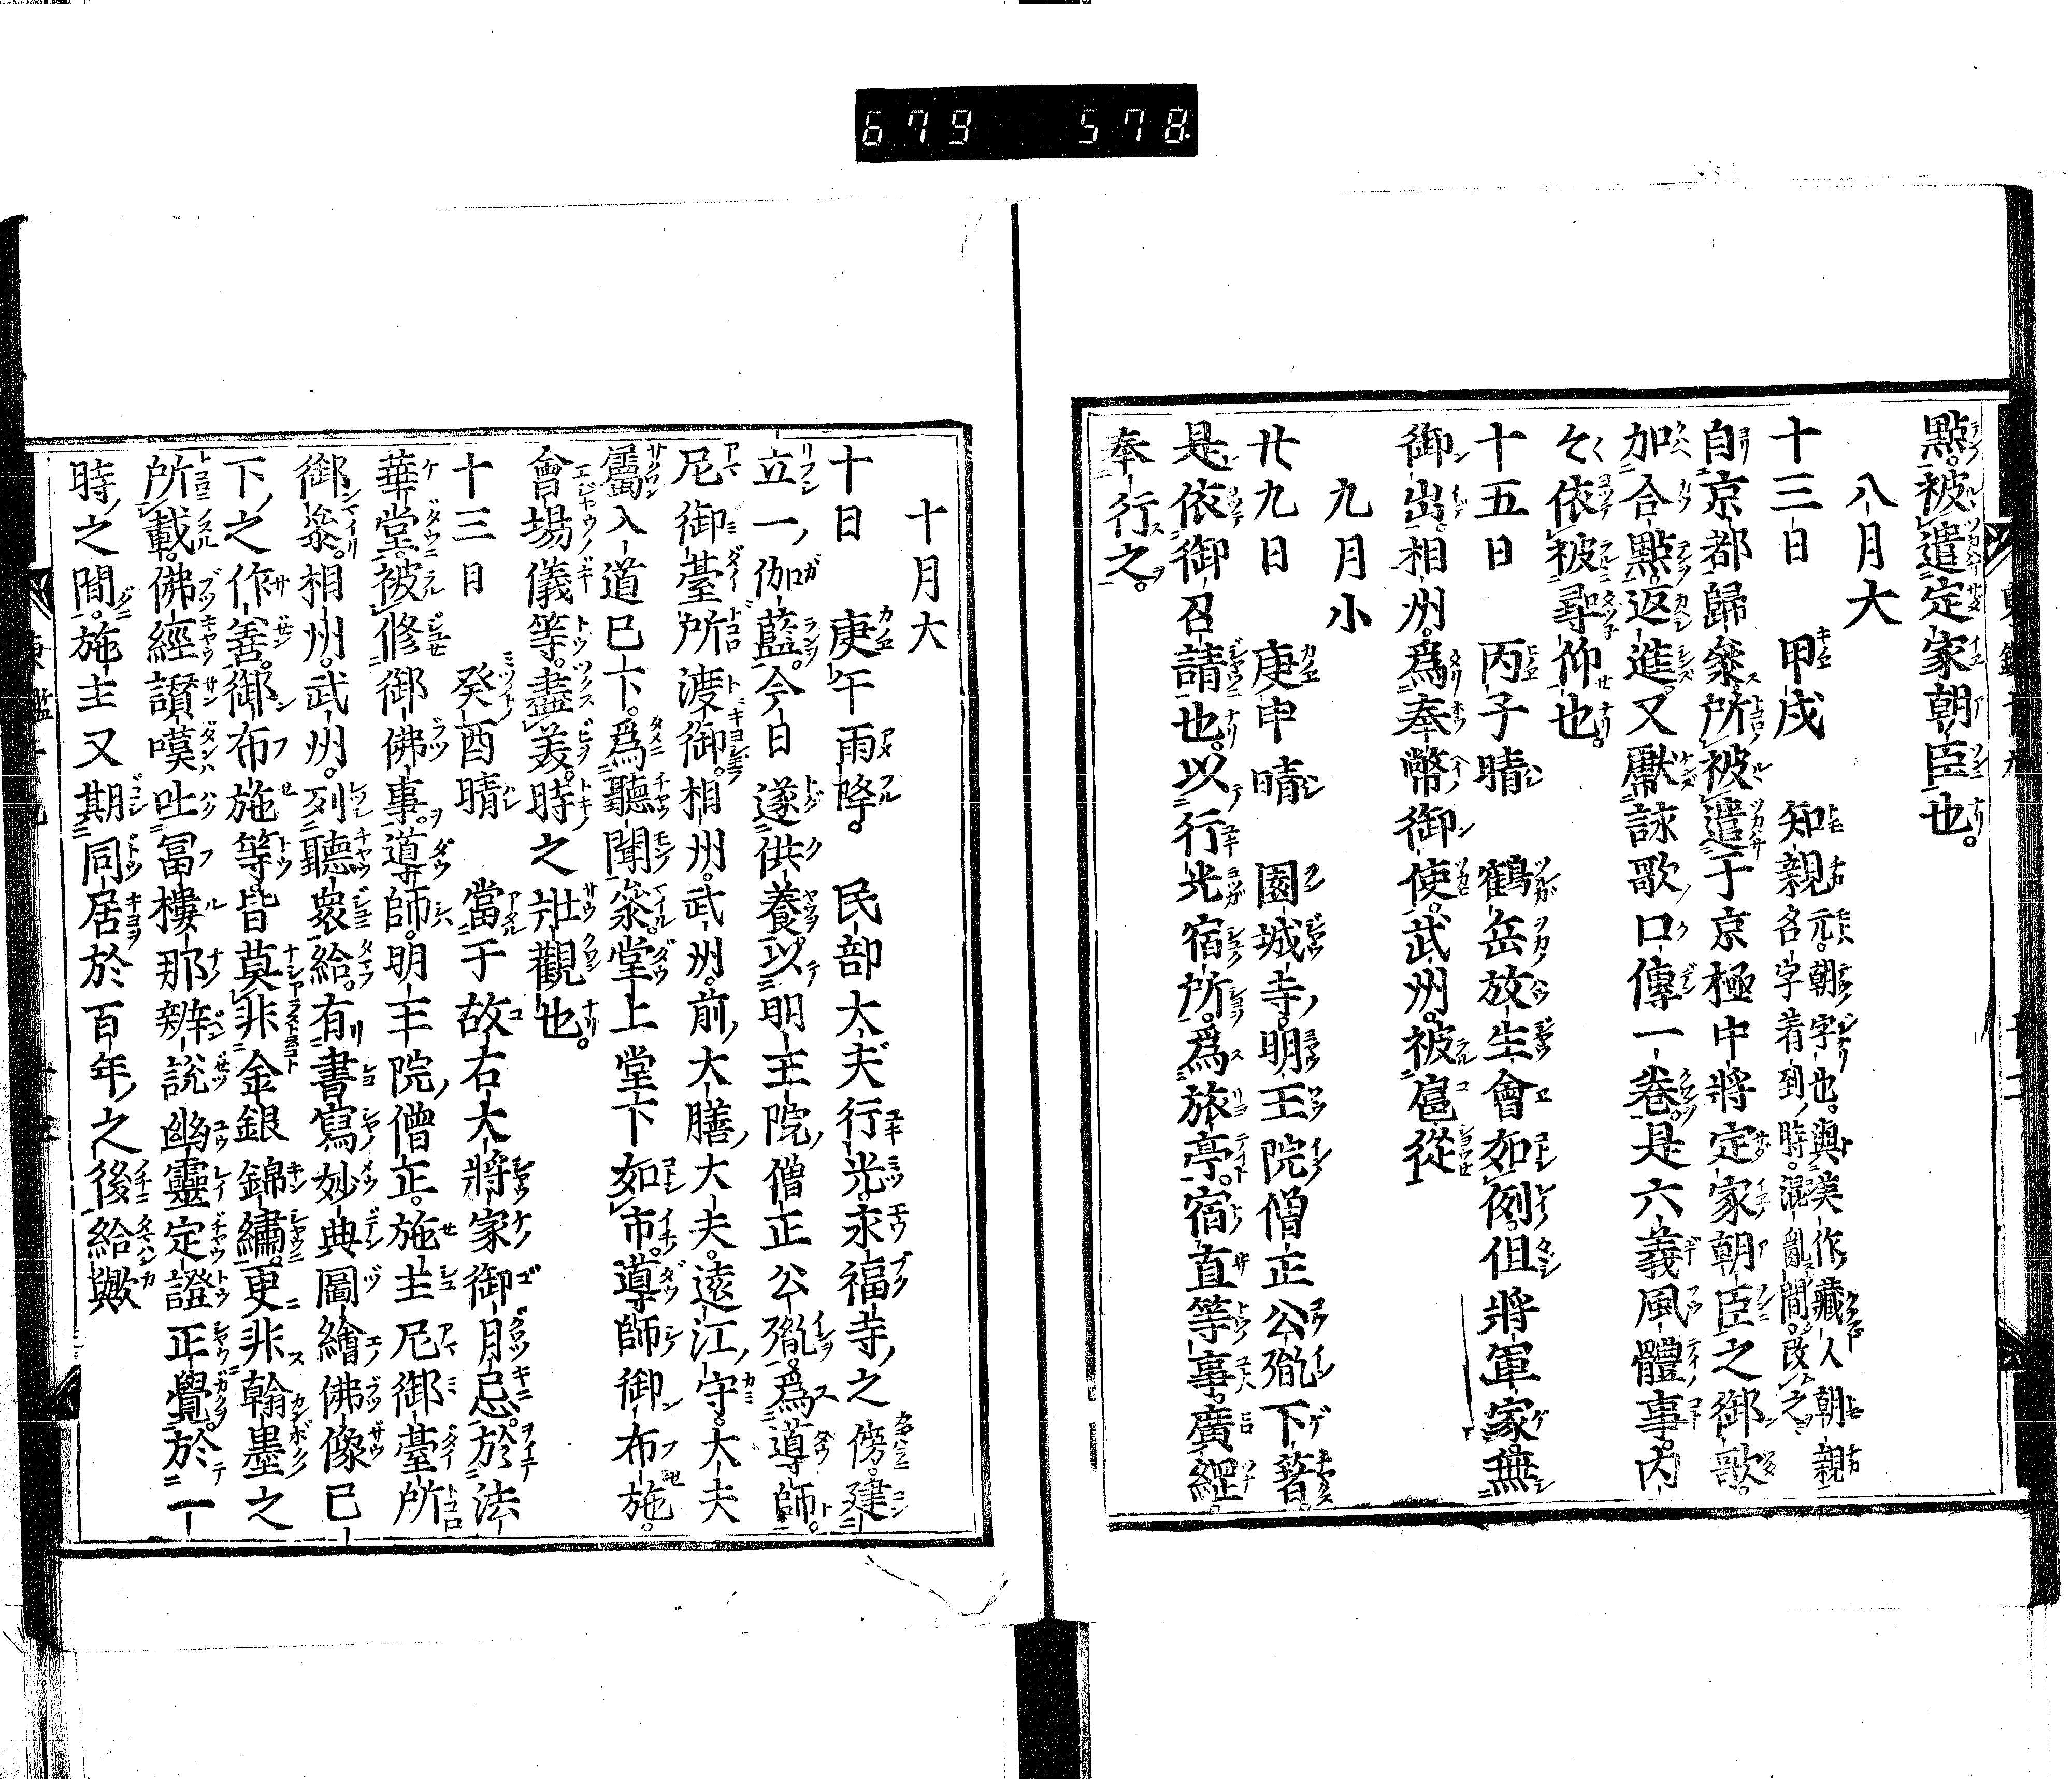 679 578
點。被遣定家朝臣也。
八月大
十三日 甲戌 知親元。朝字也。與美作藏人朝親名字着到時。混亂間。改之。
自京都歸參。所被遣于京極中將定家朝臣之御歌。
加合點返進。又獻詠歌口傳一巻。是六義風體事。内
々依被尋仰也。
十五日 丙子晴 鶴岳放生會如例。但將軍家。無
御出。相州。爲奉幣御使。武州。被扈從
九月小
廿九日 庚申晴 園城寺。明王院僧正公胤下著。
是依御召請也。以行光宿所。爲旅亭。宿直等事。廣經。
奉行之。
十月大
十日 庚午雨降。 民部大夫行光。永福寺之傍。建
立一伽藍。今日遂供養。以明王院僧正公胤。爲導師。
尼御臺所渡御。相州。武州。前大膳大夫。遠江守。大夫
屬入道已下。爲聽聞參。堂上堂下如市。導師御布施。
會場儀等。盡美。時之壯觀也。
十三日 癸酉晴 當于故右大將家御月忌。於法
華堂。被修御佛事。導師。明王院僧正。施主尼御臺所
御參。相州。武州。列聽衆給。有書寫妙典圖繪佛像已
下之作善。御布施等。皆莫非金銀錦繡。更非翰墨之
所載。佛經讃嘆吐冨樓那辨説。幽靈定證正覺。於一
時之間。施主又期同居於百年之後給歟